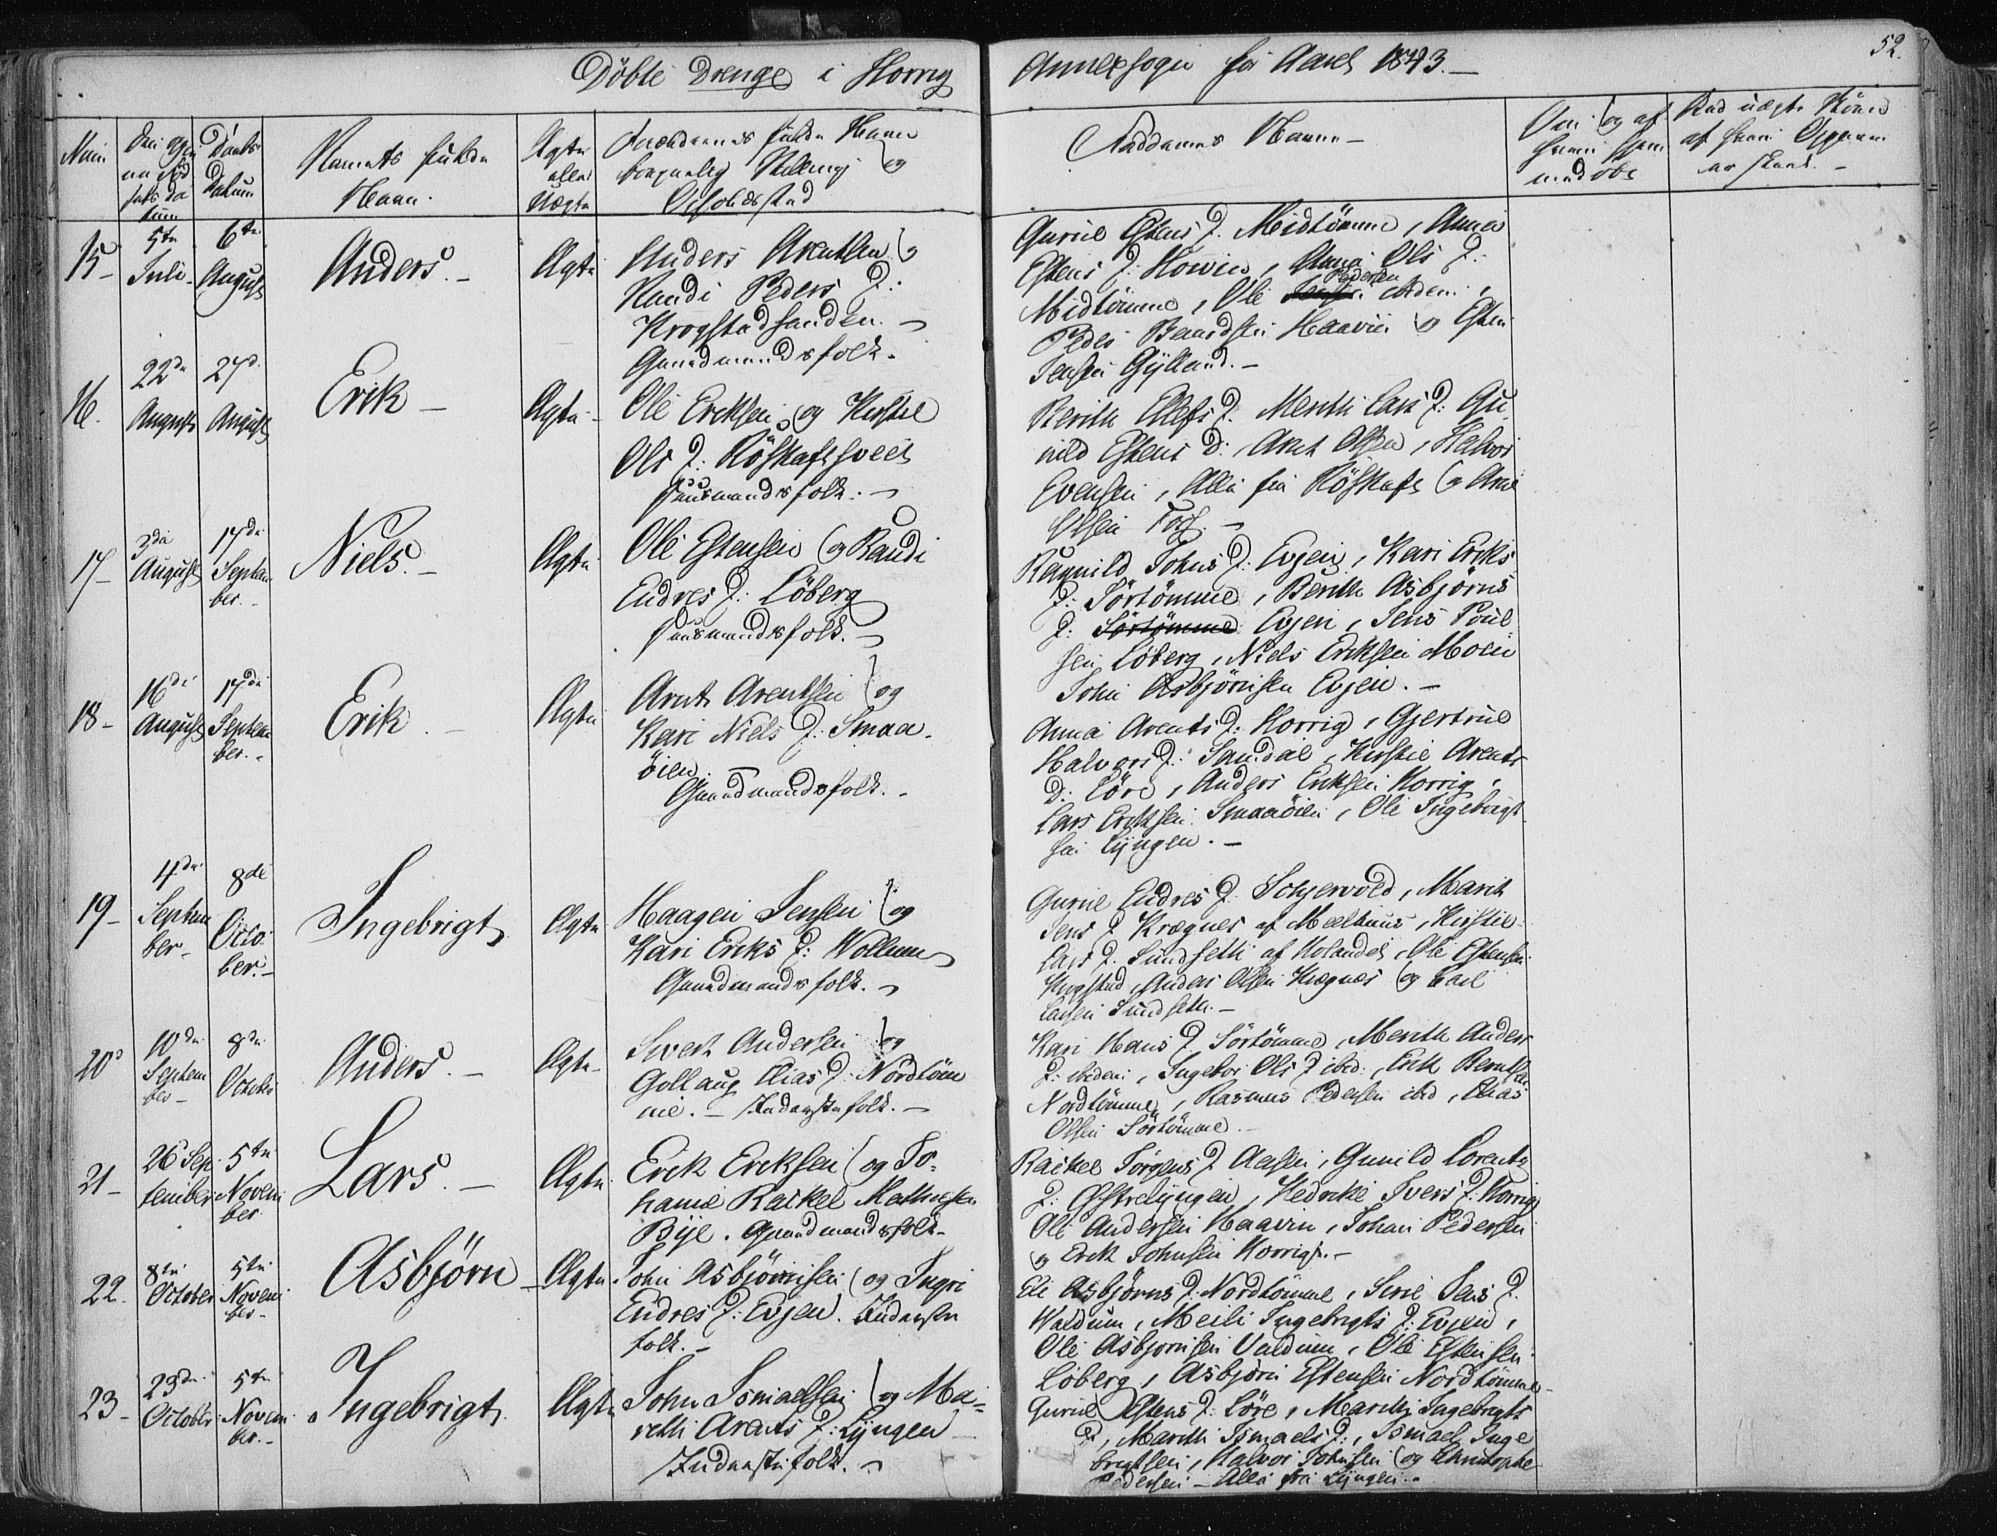 52.
Döbte Drenge i Horrig Annexsogn for Aaret 1843.
Num
Døbts Datum
Barnets fulde Navn.
Ægte eller Uægte
Forældrenes fulde Navn borgerlig Stilling og Opholdssted
Faddernes Navne
15
5te Juli
6te August
Anders.
Ægte
Anders Arentsen og
Randi Peders D:
Krogstadsanden.
Gaardmandsfolk.
Guruie Estens D. Midtömme, Anna
Estens D: Howin, Anna Ols D:
Midtömme, Ole Pedersen ibidem,
Peder Baardsen Haavin og Esten
Jensen Gylland.
16.
22de August
27d. August
Erik
Ægte
Ole Eriksen og Kirstie
Ols D: Röskaftsveet
Huusmandsfolk.
Berith Ellefs D. Merith Lars D: Gu
nild Estens D: Arnt Olsen, Halvor
Evensen, Alle fra Röskaft og Arne
Olsen Foss.
17
3die August
17de September.
Niels.
Ægte
Ole Estensen og Randi
Endres D: Löberg
Huusmandsfolk.
Ragnild Johns D: Evjen, Kari Eriks
D: Sörtömme, Berith Asbjörns
D: Sörtömme Evjen, Jens Poul
sen Löberg, Niels Eriksen Moen
John Asbjörnsen Evjen.
18
16de August
17de September.
Erik
Ægte
Arnt Arentsen og
Kari Niels D: Smaa
öien
Gaardmandsfolk.
Anna Arents D: Horrig, Gjertrue
Halvors D: Sandal, Kirstie Arents
D: Löre, Anders Eriksen Horrig,
Lars Eriksen Smaaöien, Ole Ingebrigt
sen Lyngen.
19
4de September
8de October.
Ingebrigt
Ægte
Haagen Jensen og
Kari Eriks D: Wollum
Gaardmandsfolk.
Gurue Endres D. Schjervold, Marit
Jens D. Krægnes af Meelhuus, Kirstie
Lars D. Sundsetli af Holandet, Ole Estensen
Krogstad, Anders Olsen Krægnes og Carl
Larsen Sundseth.
20
10de September
8de October
Anders.
Ægte
Sivert Andersen og
Gollaug Elias D: Nordtöm
me. Inderstefolk.
Kari Hans D. Sörtömme, Merith Anders
D: ibidem, Ingebor Ols D ibid., Erik Berntsen
Nordtömme, Rasmus Pedersen ibid, Elias
Olsen Sörtömme.
21
26 September
5te November
Lars.
Ægte
Erik Eriksen og Jo-
hanne Rackel Mathiesen
Bye. Gaardmandsfolk.
Rackel Jörgens D. Aasen, Gunild Lorents
D: Østrelyngen, Hedvike Ivers D: Horrig
Ole Andersen Haavin, Johan Pedersen
og Erik Johnsen Horrig.
22.
8de October
5te November
Asbjørn
Ægte
John Asbjörnsen og Ingri
Endres D: Evjen. Inderste
folk.
Eli Asbjørns D: Nordtömme, Sirie Jens D.
Waldum, Meili Ingebrigts D: Evjen,
Ole Asbjornsen Valdum, Ole Estensen
Löberg, Asbjörn Estensen Nordtömme
23
23de October
5te November.
Ingebrigt
Ægte
John Ismaelsen og Ma-
rethi Arents D: Lyngen
Inderstefolk.
Gurue Estens D: Löre, Marethi Ingebrigts
D, Marethi Ismaels D:, Ismael Inge
brigtsen, Halvor Johnsen og Christophe
Pedersen Alle fra Lyngen.